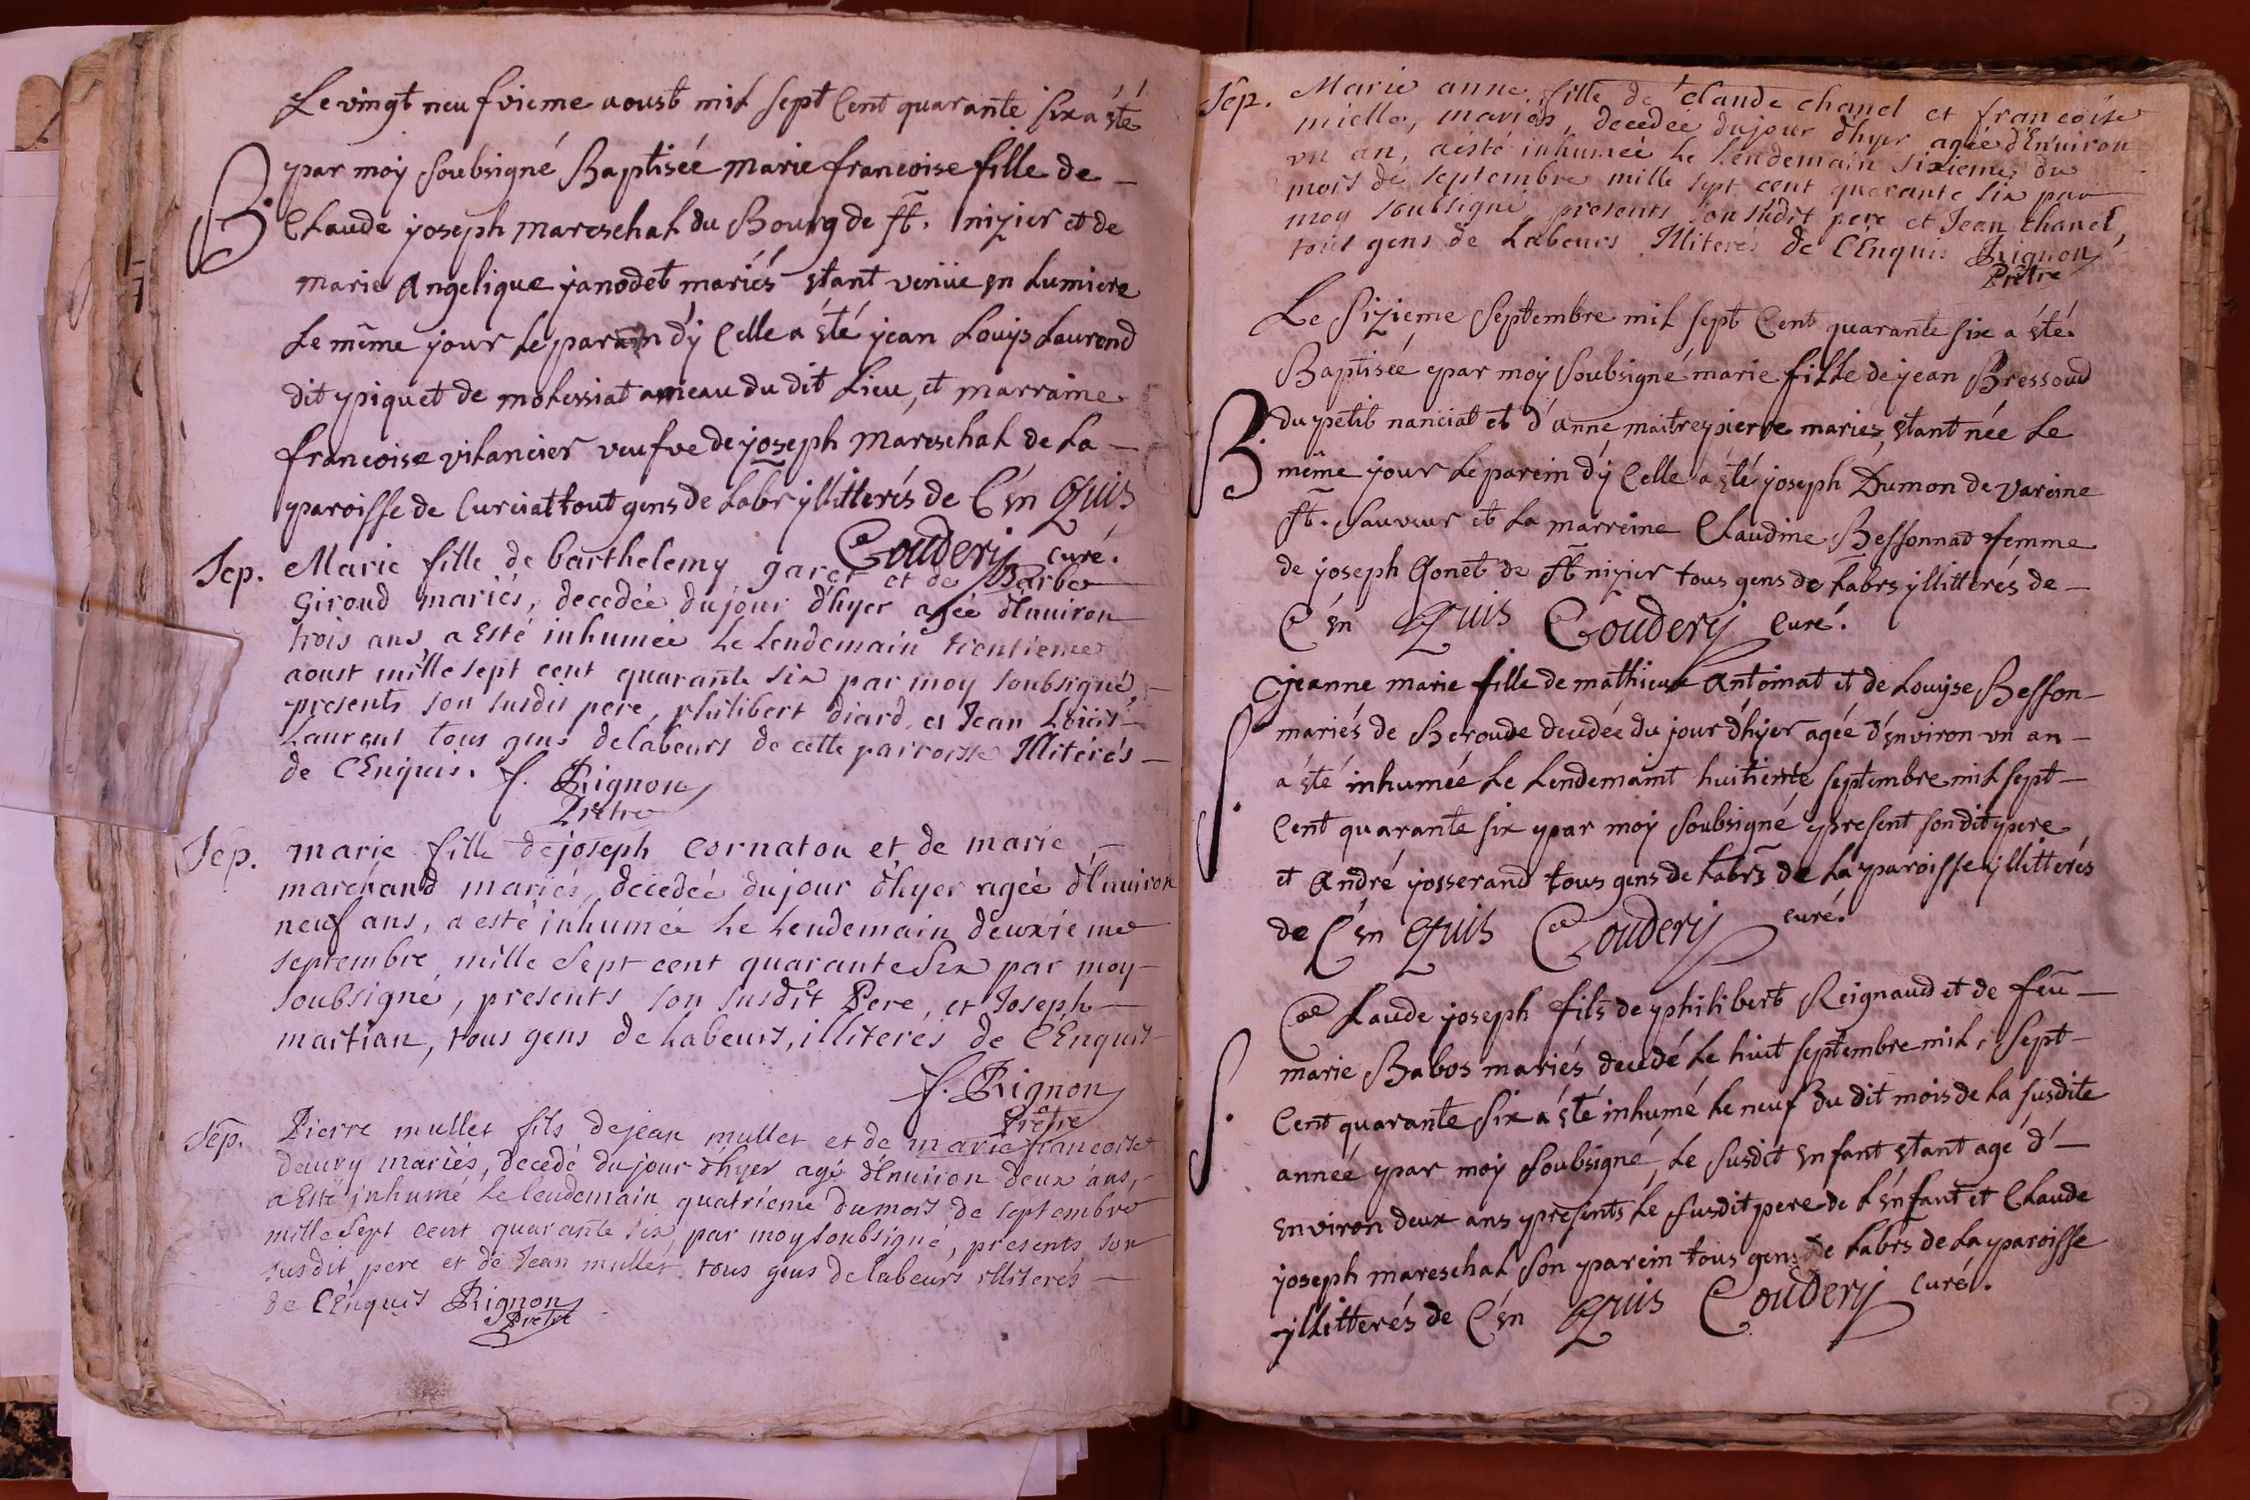 Le vingt neufvieme aoust mil sept Cent quarante six a été
B. par moÿ soubsigné Baptiseé marie francoise fille de
Claude joseph mareschal du Bourg de st. nizier et de
marie Angelique janodet mariés étant venüe en lumiere
le même jour le parain d'ÿ Celle a été jean Louÿs Laurend
dit piquet de molissiat ameau du dit Lieu, et marraine
francoise vilancier veufve de joseph mareschal de la
paroisse de Curciat tout gens de labr ÿllitterés de C'én Quis
Couderÿ curé.
Sep. Marie fille de barthelemy garet et de Barbe
Giroud mariés, decedeé du jour d'hyer agée d'Enuiron
trois ans, a Esté inhumeé le lendemain trentieme
aoust mille sept cent quarante six par moy soubsigné,
presents son susdit pere, philibert diard et Jean Loüis
Laurent tous gens de labeurs de cette parroisse Illiterés
de C'Enquis. f. Rignon
Prêtre
Sep. marie fille de joseph cornaton et de marie
marchand mariés, decedeé du jour d'hyer agée d'Enuiron
neuf ans, a esté inhumeé le lendemain deuxieme
septembre mille sept cent quarante six par moy
soubsigné, presents son susdit Pere, et Joseph
martian, tous gens de labeurs, illiterés de C'Enquis
f. Rignon
Prêtre
Sep. Pierre mullet fils de jean mullet et de marie francoise
deuvy mariés, decedé du jour d'hyer agé d'Enuiron deux ans,
a Esté inhumé le lendemain quatrieme du mois de septembre
mille sept cent quarante six par moy soubsigné, presents son
susdit pere et de Jean mullet tous gens de labeurs illiterés
de C'Enquis Rignon
Prêtre
Sep. Marie anne fille de Claude chanel et francoise
miellet, mariés, decedeé du jour d'hyer agée d'Enuiron
vn an, a esté inhumeé le lendemain sixieme du
mois de septembre mille sept cent quarante six par
moy soubsigné, presents son susdit pere et Jean chanel,
tout gens de labeurs Illiterés de C'Enquis Rignon
Prêtre
Le Sizieme Septembre mil sept Cent quarante six a été
Baptiseé par moÿ soubsigné marie fille de jean Bressoud
B. du petit nanciat et d'anne maitrepierre mariés, étant née le
même jour le parein d'ÿ Celle a été joseph Dumon de vareine
st. sauveur et la marreine Claudine Bessonnad femme
de joseph Gonet de st nizier tous gens de labrs ÿllitterés de
C'én Quis Couderÿ Curé.
S. jeanne marie fille de mathieu Antoinat et de Louÿse Besson
mariés de Beroude decedée du jour d'hÿer agée d'énviron vn an
a été inhumée le lendemaint huitieme septembre mil sept
Cent quarante six par moÿ soubsigné present son dit pere
et André josserand tous gens de labrs de la paroisse ÿllitterés
de C'én Quis Couderÿ curé.
S. Claude joseph fils de philibert Reignaud et de feu
marie Babos mariés decedé le huit septembre mil sept
Cent quarante six a été inhumé le neuf du dit mois de la susdite
anneé par moÿ soubsigné, le susdit enfant étant agé d'
environ deux ans presents le susdit pere de l'énfant et Claude
joseph mareschal son parein tous gens de labrs de la paroisse
ÿllitterés de C'én Quis Couderÿ Curé.